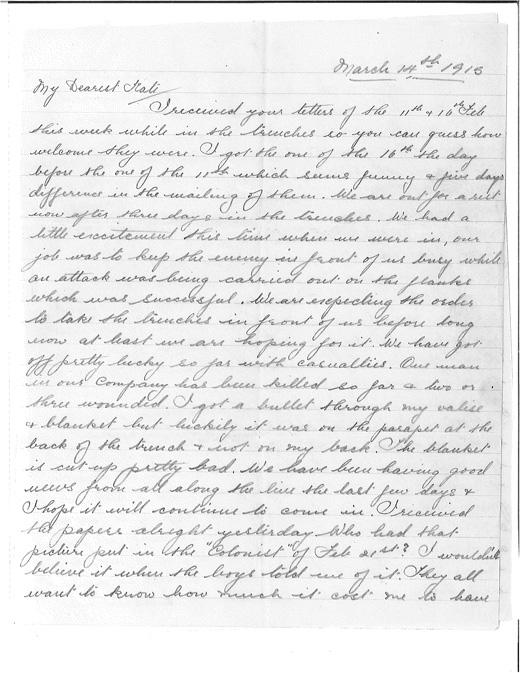 March 14th 1915
My Dearest Kate
I received your letters of the 11th & 16th Feb
this week while in the trenches so you can guess how
welcome they were. I got the one of the 16th the day
before the one of the 11th which seems funny & five days
difference in the mailing of them. We are out for a rest
now after three days in the trenches. We had a
little excitement this time when we were in, our
job was to keep the enemy in front of us busy while
an attack was being carried out on the flanks
which was successful. We are expecting the order
to take the trenches in front of us before long
now at least we are hoping for it. We have got
off pretty lucky so far with casualties. One man
in our company has been killed so far & two or
three wounded. I got a bullet through my valise
& blanket but luckily it was on the parapet at the
back of the trench & not on my back. The blanket
is cut up pretty bad. We have been having good
news from all along the line the last few days &
I hope it will continue to come in. I received
the papers alright yesterday Who had that
picture put in the "Colonist" of Feb 21st? I wouldn't
believe it when the boys told me of it. They all
want to know how much it cost me to have